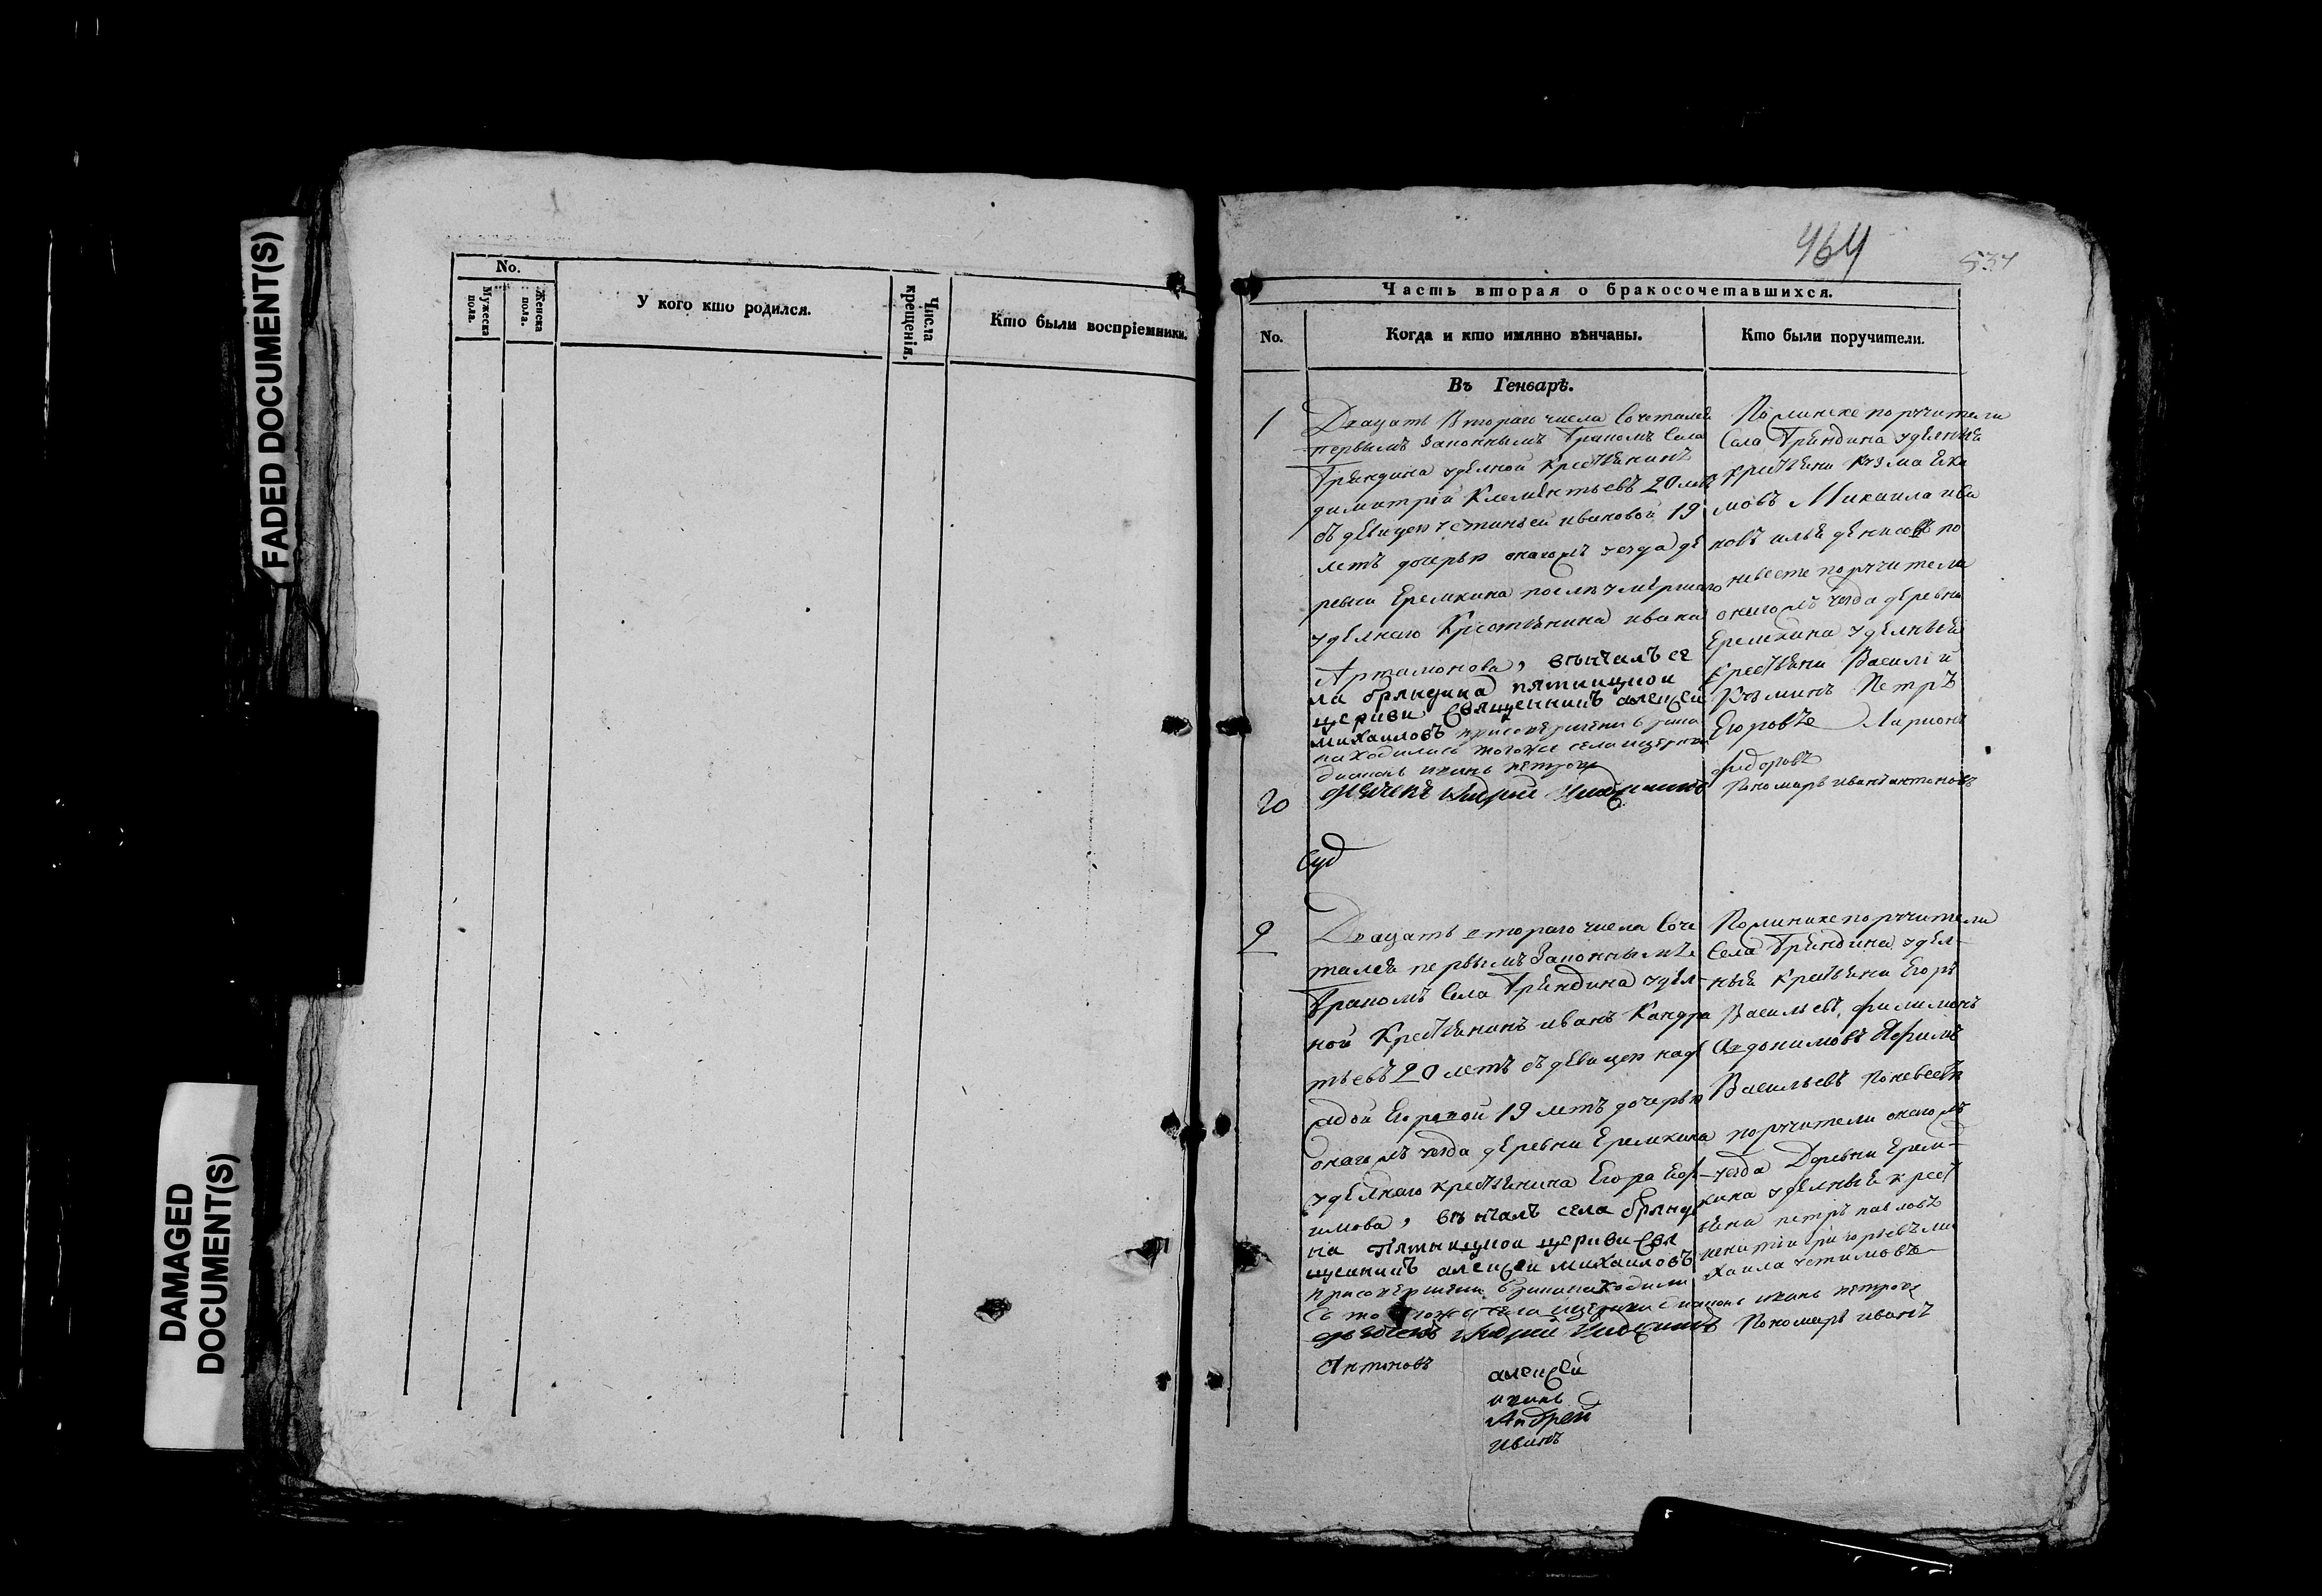 FADED DOCUMENT(S)
DAMAGED
DOCUMENT(S)
No.
Мужеска пола.
Женска пола.
У кого кто родился.
Числа крещенія.
Кто были воспріемники.
464
534
Часть вторая о бракосочетавшихся.
No.
Когда и кто имянно вѣнчаны.
Кто были поручители.
Въ Генварѣ.
1
Двацать Втораго числа Сочетался
первымъ Законнымъ бракомъ Села
Бряндина удѣлной Крестьянинъ
димитрій Клементьевъ 20 летъ
съ девицею устиньей ивановой 19
летъ дочерью онагожъ уезда де
ревни Еремкина после умершаго
удѣлнаго Крестьянина ивана
Артамонова, венчалъ се
ла бряндина пятницкой
церкви Священникъ алексей
михаиловъ при соверше­нии брака
находились тогоже села церкви
диаконъ иванъ петровъ
дьячекъ Андрей
По жинехе поручители
Села Бряндина удѣлныя
крестьяни Козма Еки
мовъ Михаила ива
новъ илья денисовъ по
невесте поручители
онагожъ уезда деревни
Еремкина удѣлныя
Крестьяни Василій
Козминъ Петръ
Егоровъ Ларионъ
Сидоровъ
Пономарь иванъ антоновъ
20
2
Двацать втораго числа Соче
тался первымъ Законнымъ
бракомъ Села Бряндина удѣл-
ной Крестьянинъ иванъ Кандра
тьевъ 20 летъ съ девицею наде
ждой Егоровой 19 летъ дочерью
онагожъ уезда деревни Еремкина
удѣлнаго крестьянина Егора Еф
имова, венчалъ села брянди
на пятницкой церкви свя
щенникъ алексей михаиловъ
при совершении брака находили
сь тогоже села церкви диаконъ иванъ петровъ
дьячекъ Андрей
Пономарь иванъ
Антоновъ
По жинихе поручители
Села Бряндина удѣл-
ныя Крестьяни Егоръ
Васильевъ, филимонъ
Авдокимовъ Ефимъ
Васильевъ По невесте
поручители онагожъ
уезда Деревни Ерем-
кина удѣлныя крест
ьяна петръ павловъ
никита григорьевъ ми
хаила устимовъ
алексей
иванъ
Андрей
иванъ